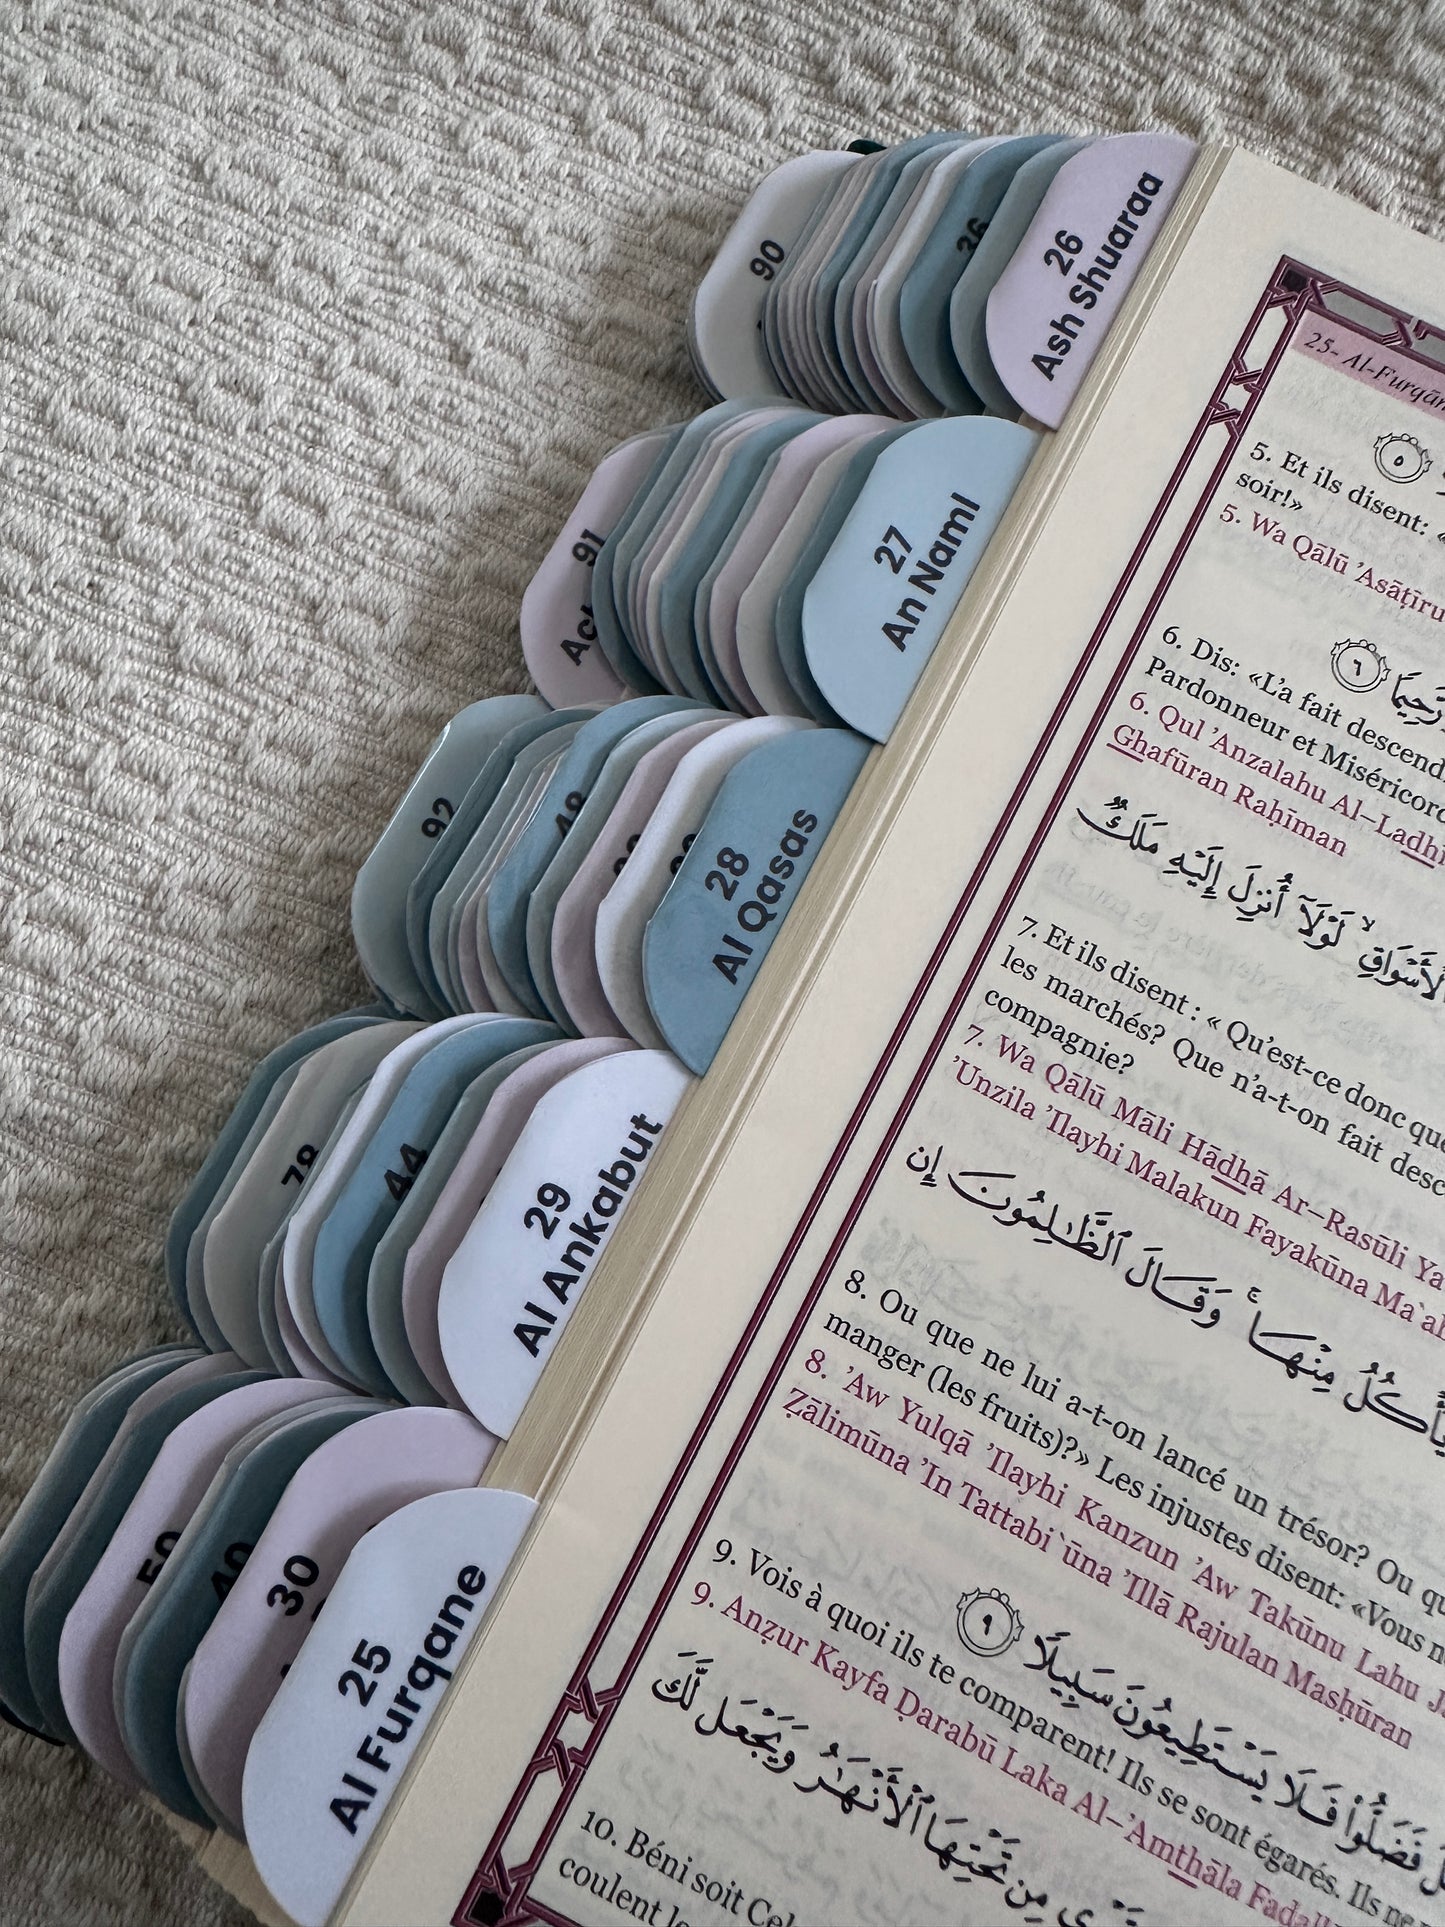 90
36
26
Ash Shuaraa
91
27
An Naml
92
48
28
Al Qasas
78
44
29
Al Ankabut
50
40
30
25
Al Furqane
25- Al-Furqān
٥
5. Et ils disent: «
soir!»
5. Wa Qālū ’Asāṭīru
٦
رَّحِيمًا
6. Dis: «L’a fait descend
Pardonneur et Miséricord
6. Qul ’Anzalahu Al–Ladhī
Ghafūran Raḥīman
ٱلْأَسْوَاقِ ۙ لَوْلَآ أُنزِلَ إِلَيْهِ مَلَكٌ
7. Et ils disent : « Qu’est-ce donc que
les marchés? Que n’a-t-on fait desc
compagnie?
7. Wa Qālū Māli Hādhā Ar–Rasūli Ya
’Unzila ’Ilayhi Malakun Fayakūna Ma`ah
يَأْكُلُ مِنْهَا ۚ وَقَالَ ٱلظَّـٰلِمُونَ إِن
8. Ou que ne lui a-t-on lancé un trésor? Ou qu
manger (les fruits)?» Les injustes disent: «Vous n
8. ’Aw Yulqā ’Ilayhi Kanzun ’Aw Takūnu Lahu J
Ẓālimūna ’In Tattabi`ūna ’Illā Rajulan Masḥūran
فَضَلُّوا۟ فَلَا يَسْتَطِيعُونَ سَبِيلًا ٩
9. Vois à quoi ils te comparent! Ils se sont égarés. Ils ne
9. Anẓur Kayfa Ḍarabū Laka Al–’Amthāla Faḍal
مِن تَحْتِهَا ٱلْأَنْهَـٰرُ وَيَجْعَل لَّكَ
10. Béni soit Cel
coulent le